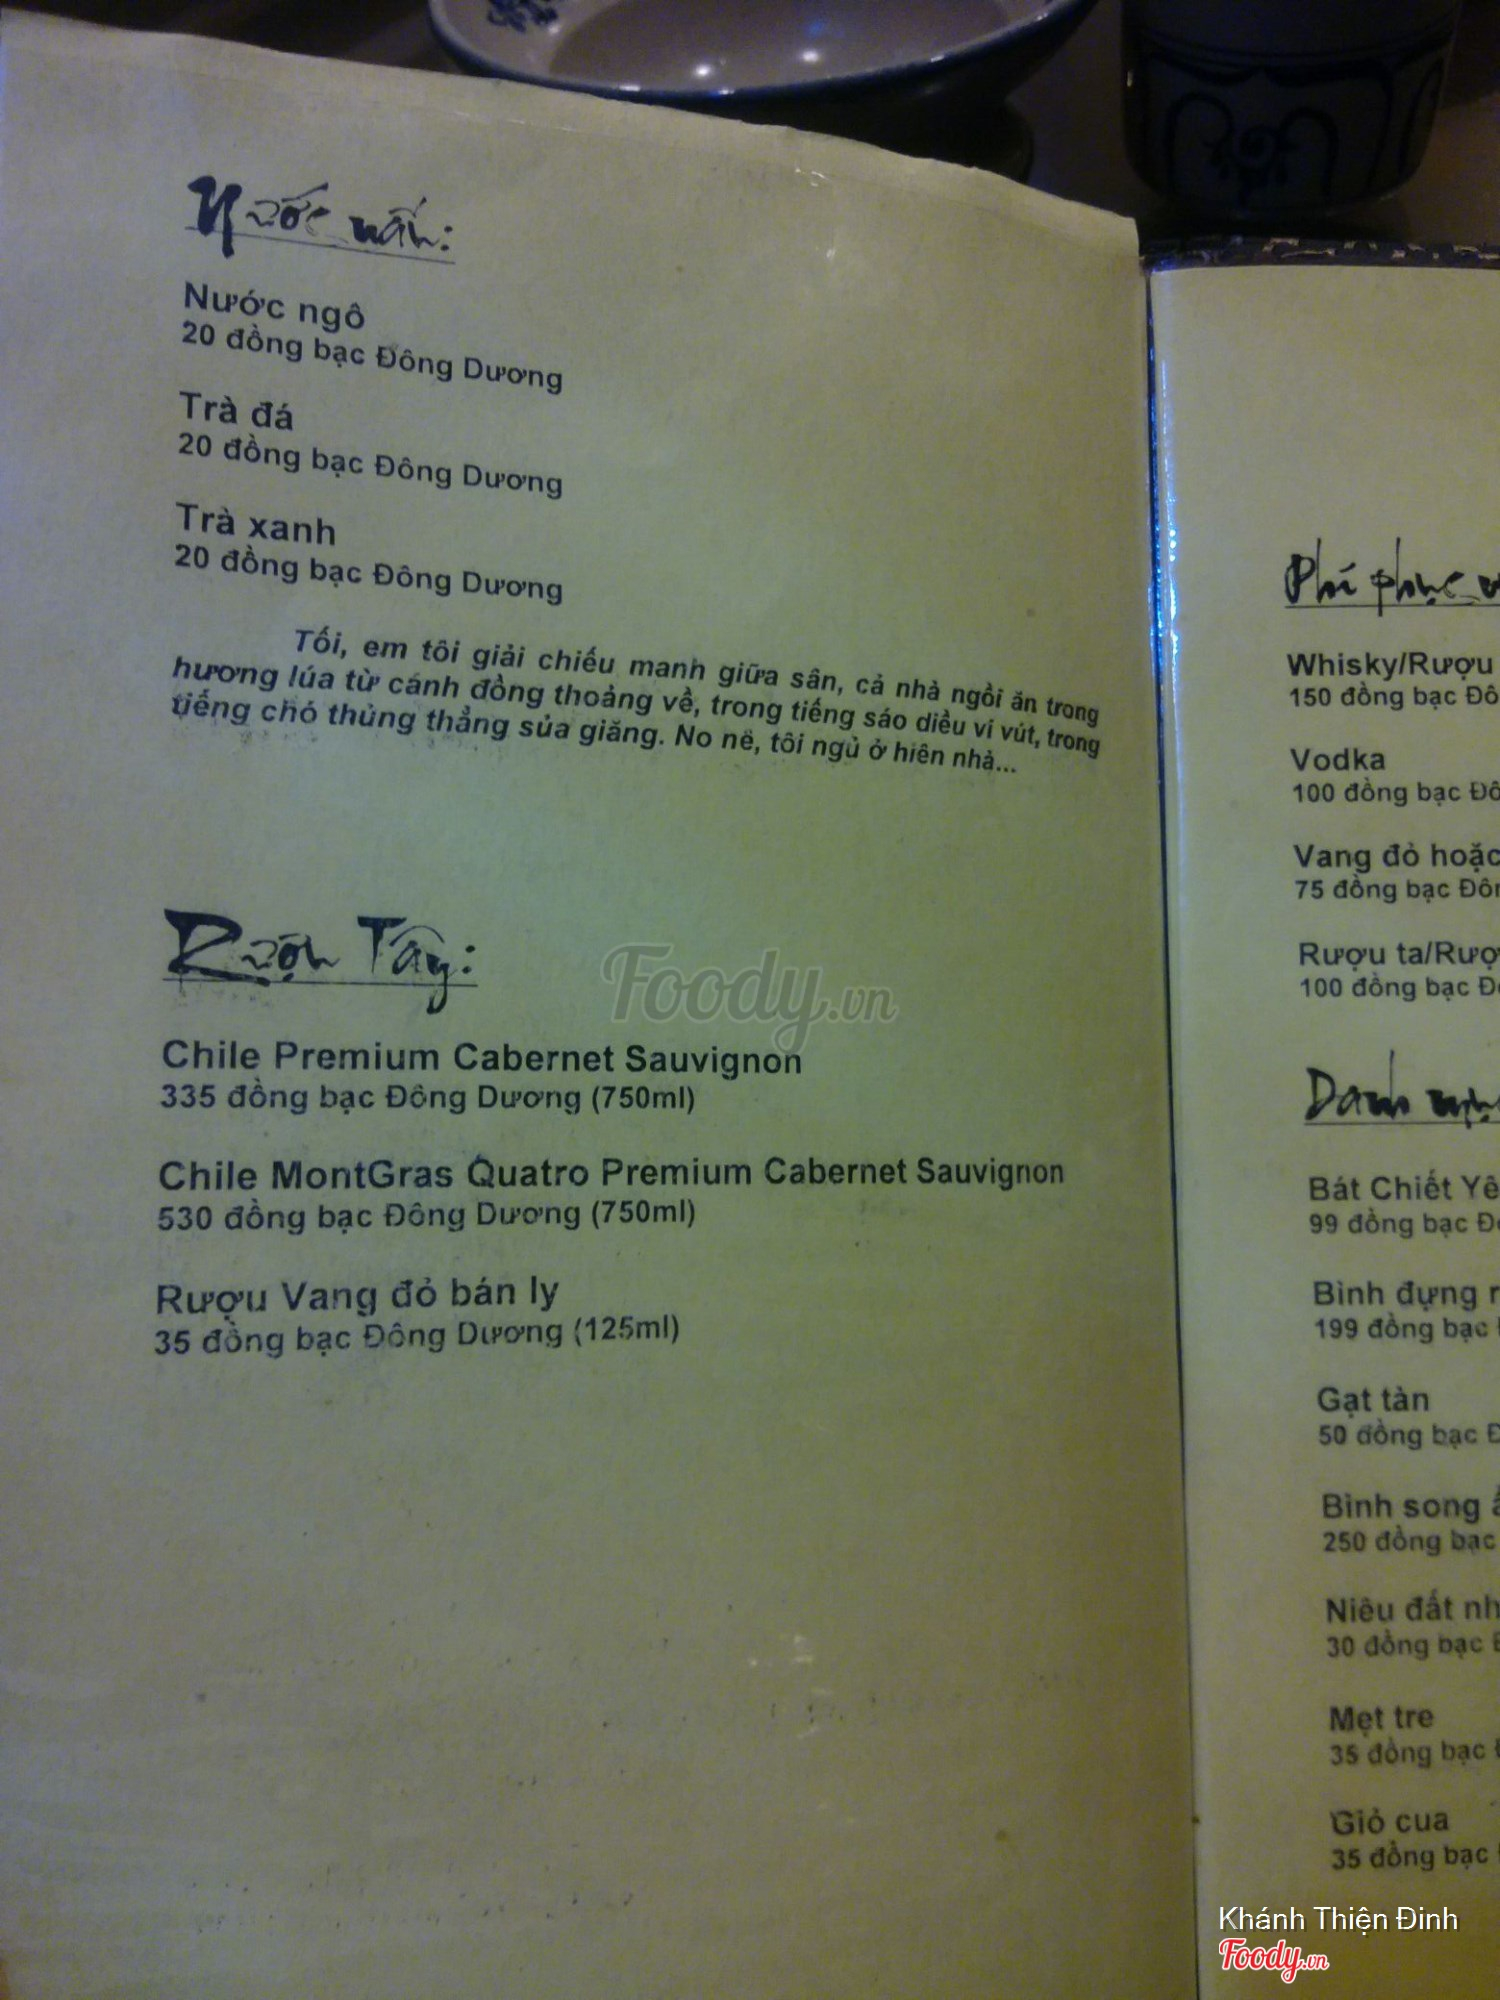 Nước nấu:
Nước ngô
20 đồng bạc Đông Dương
Trà đá
20 đồng bạc Đông Dương
Trà xanh
20 đồng bạc Đông Dương
Tối, em tôi giải chiếu manh giữa sân, cả nhà ngồi ăn trong
hương lúa từ cánh đồng thoảng về, trong tiếng sáo diều vi vút, trong
tiếng chó thủng thẳng sủa giăng. No nê, tôi ngủ ở hiên nhà...
Rượu Tây:
Chile Premium Cabernet Sauvignon
335 đồng bạc Đông Dương (750ml)
Chile MontGras Quatro Premium Cabernet Sauvignon
530 đồng bạc Đông Dương (750ml)
Rượu Vang đỏ bán ly
35 đồng bạc Đông Dương (125ml)
Foody.vn
Phí phục
Whisky/Rượu
150 đồng bạc Đô
Vodka
100 đồng bạc Đô
Vang đỏ hoặc
75 đồng bạc Đôn
Rượu ta/Rượ
100 đồng bạc Đ
Danh mục
Bát Chiết Yê
99 đồng bạc Đ
Bình đựng r
199 đồng bạc
Gạt tàn
50 đồng bạc Đ
Bình song ấ
250 đồng bạc
Niêu đất nh
30 đồng bạc Đ
Mẹt tre
35 đồng bạc
Giỏ cua
35 đồng bạc
Khánh Thiện Đinh
Foody.vn